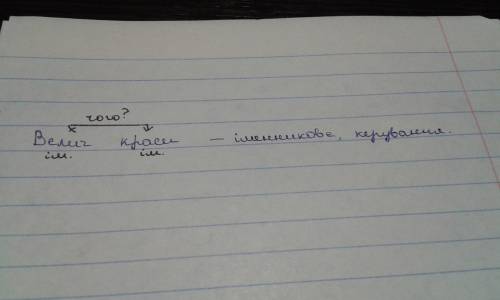 чого?
Велич краси – іменникове, керування.
ім. ім.